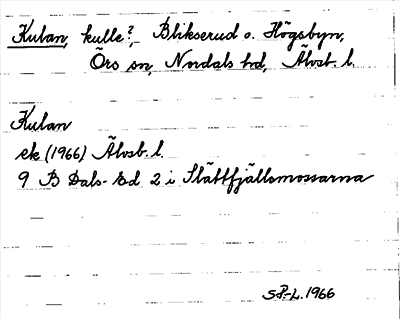 Kulan, kulle?, Blikserud o. Högsbyn,
Örs sn, Nordals hd, Älvsb. l.
Kulan
ek (1966) Älvsb. l.
9 B Dals-Ed 2 i Slättfjällsmossarna
S.P-L. 1966